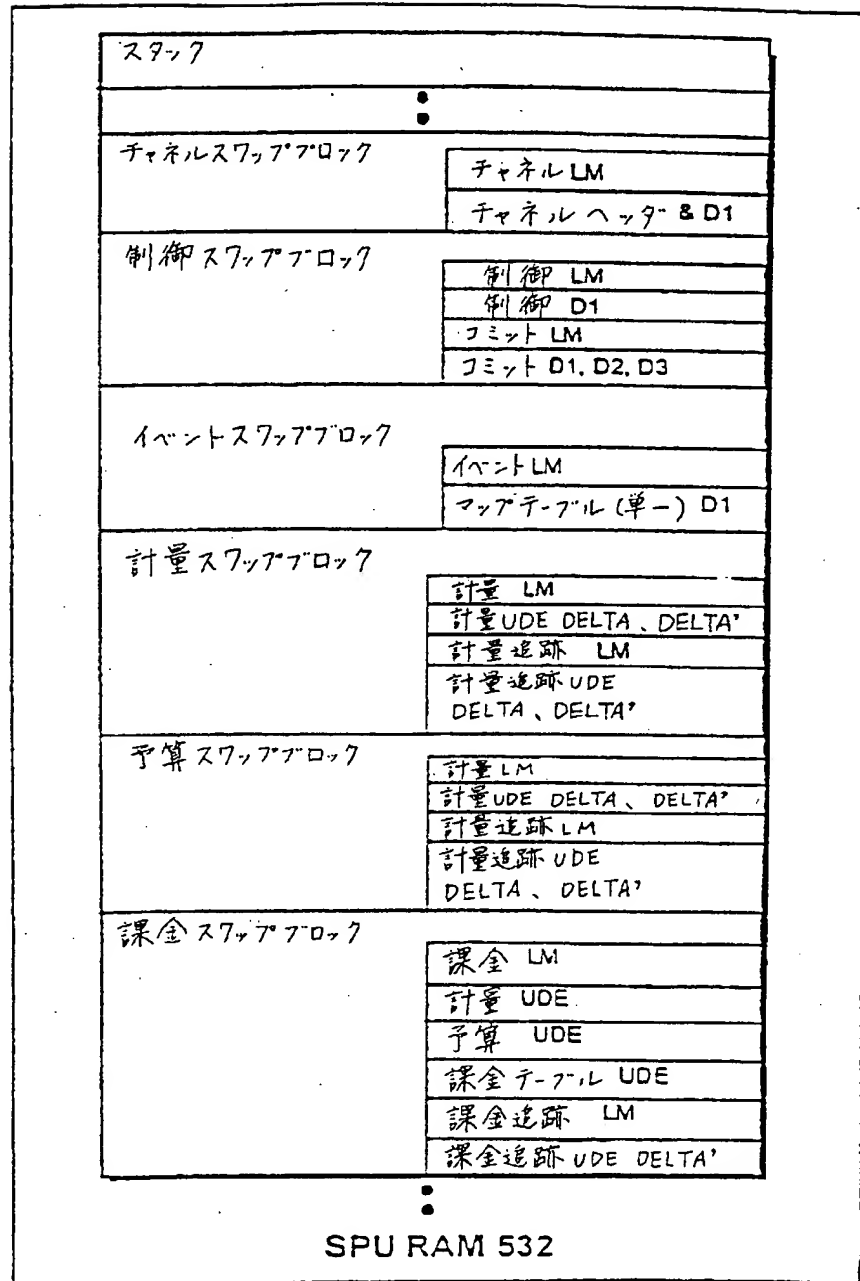 スタック
チャネルスワップブロック
チャネル LM
チャネル ヘッダ & D1
制御スワップブロック
制御 LM
制御 D1
コミット LM
コミット D1, D2, D3
イベントスワップブロック
イベント LM
マップテーブル (単一) D1
計量スワップブロック
計量 LM
計量 UDE DELTA、DELTA'
計量追跡 LM
計量追跡 UDE
DELTA、DELTA'
予算スワップブロック
計量 LM
計量 UDE DELTA、DELTA'
計量追跡 LM
計量追跡 UDE
DELTA、DELTA'
課金スワップブロック
課金 LM
計量 UDE
予算 UDE
課金テーブル UDE
課金追跡 LM
課金追跡 UDE DELTA'
SPU RAM 532